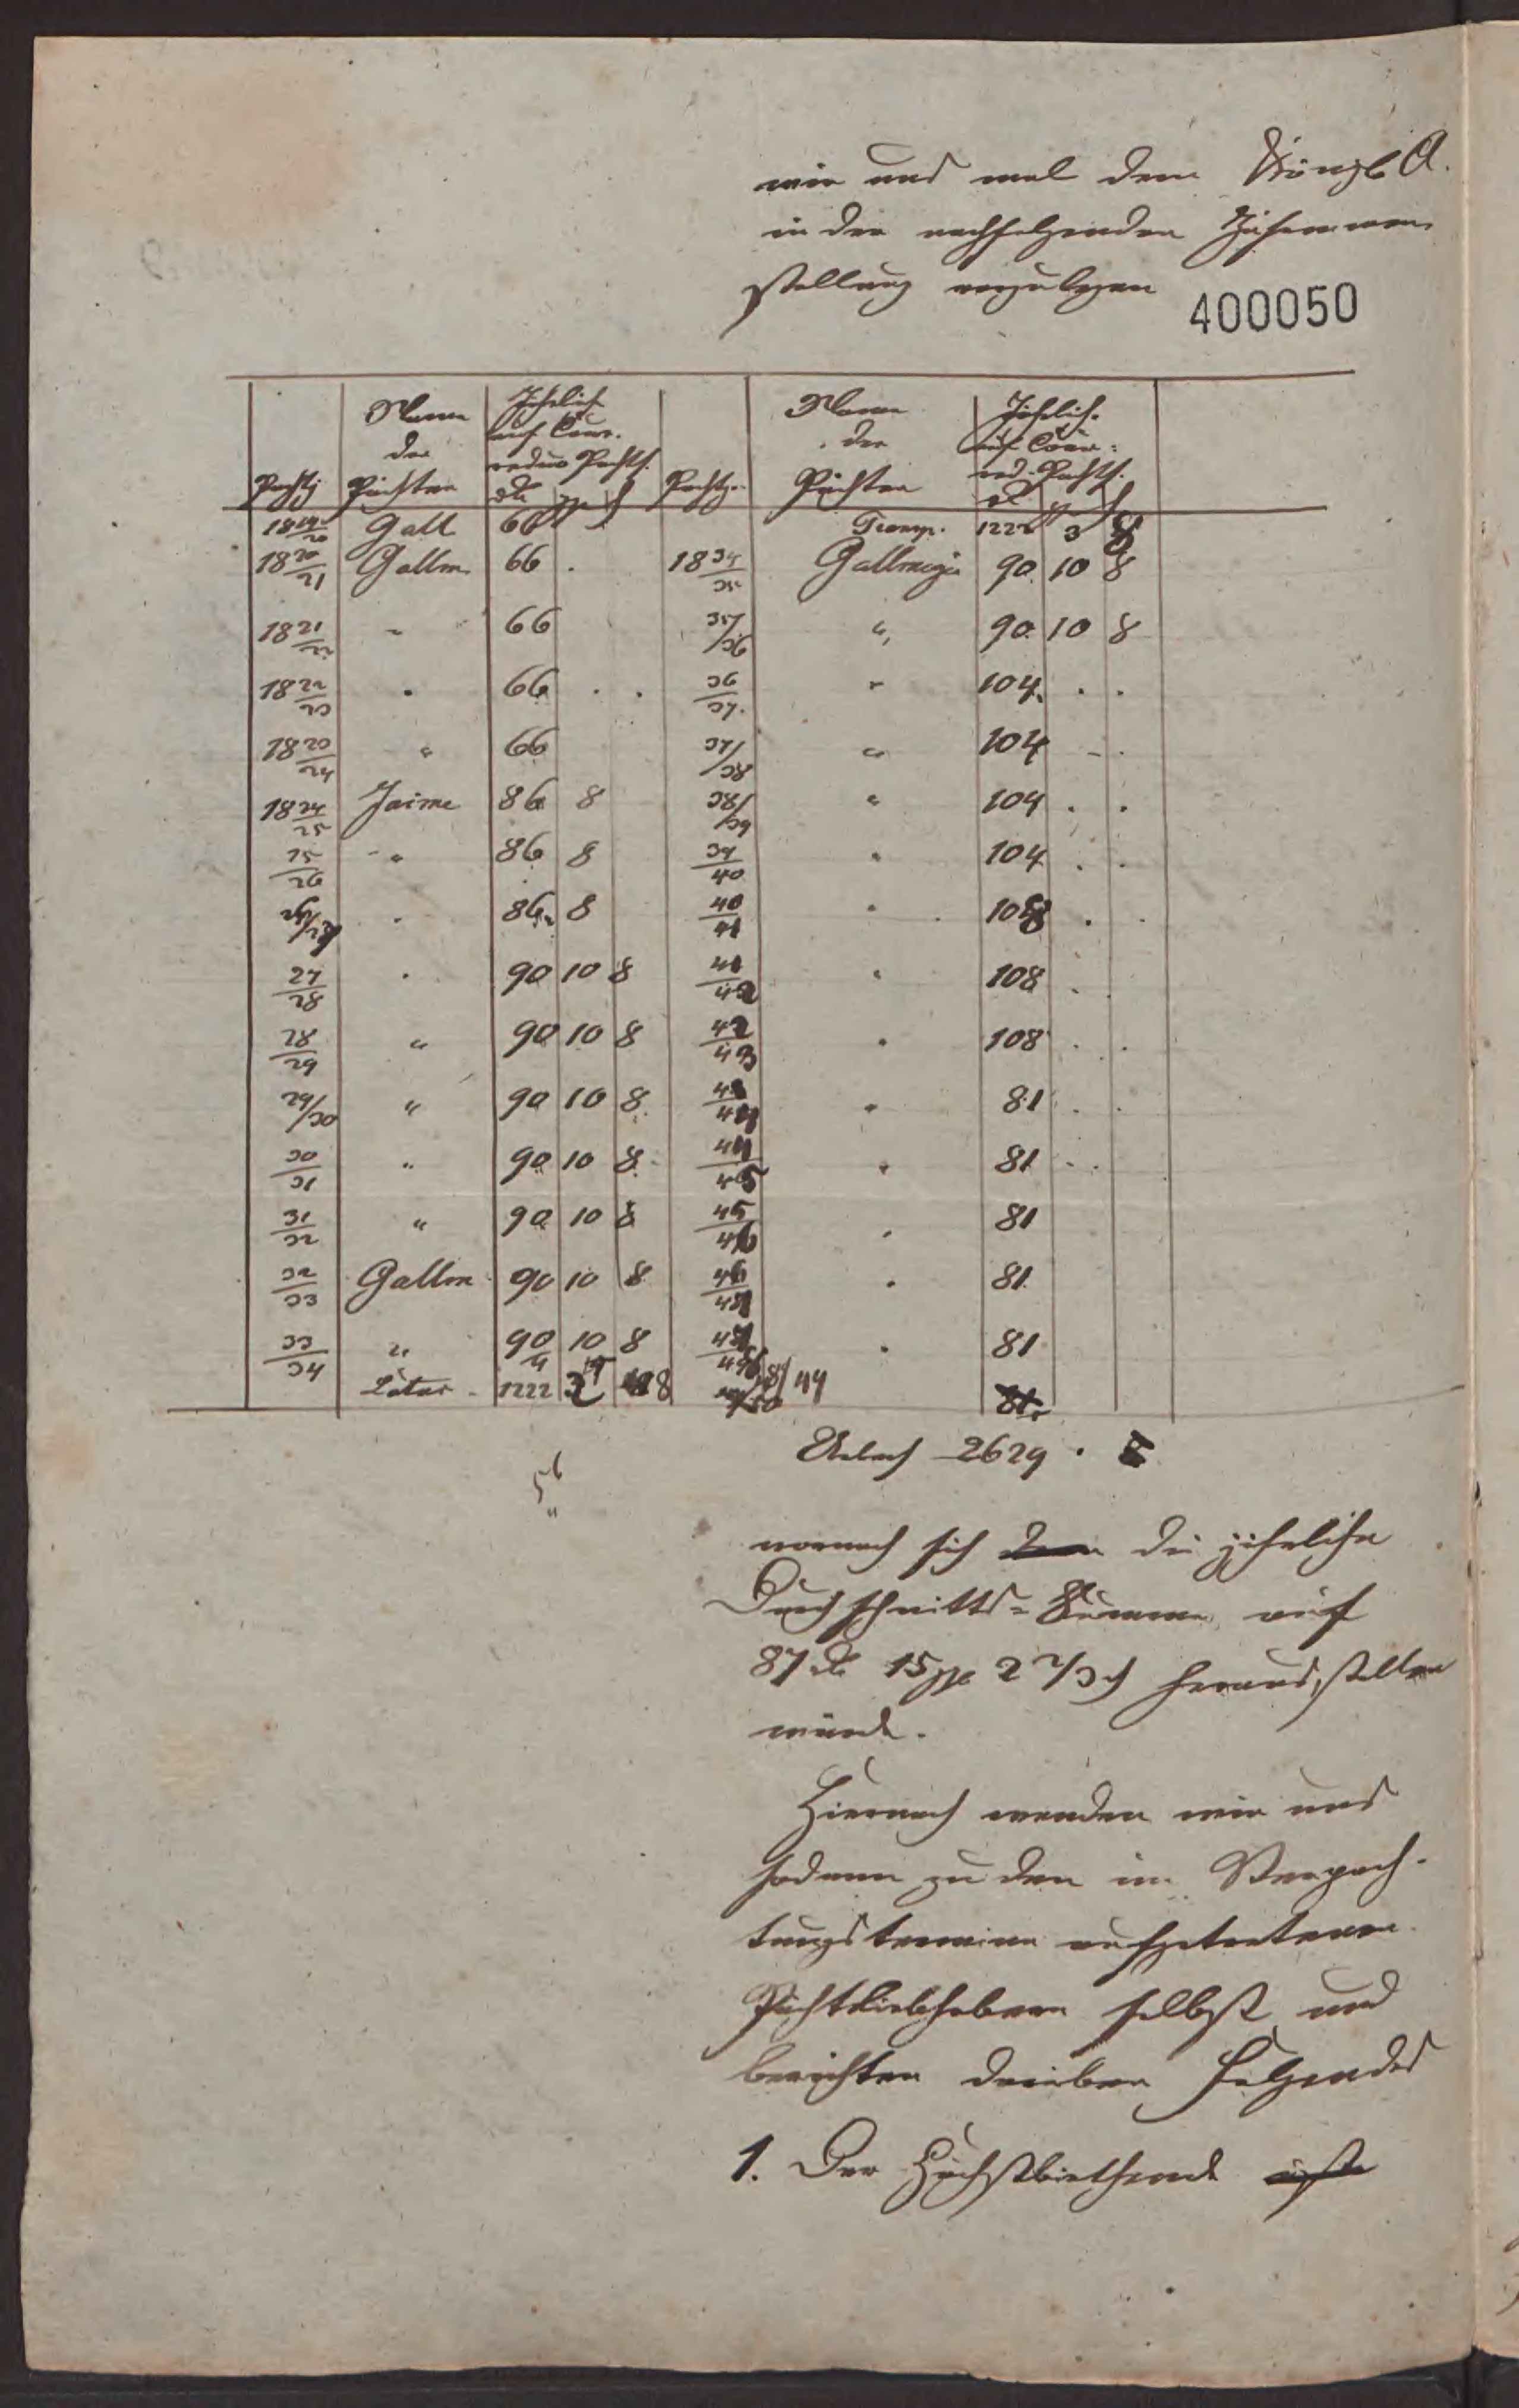 wie uns mal dem Königl. A.
in der nachfolgenden Zusammen
stellung vorzulegen
400050
Pachtj | Name der Pächter | Jährlich auf Cour. reduc Pachts. | Pachtj. | Name der Pächter | Jährlich auf Cour: red. Pachts.
18 19/20 Gall 66 | Transp. 1222 3 8
18 20/21 Gallm 66 . | 18 34/35 Gallmeyer 90 10 8
18 21/22 " 66 | 35/36 " 90 10 8
18 22/23 " 66 . . | 36/37 " 104 . .
18 23/24 " 66 | 37/38 " 104 - .
18 24/25 Jaime 86 8 | 38/39 " 104 . .
25/26 " 86 8 | 39/40 " 104 . .
26/27 " 86 8 | 40/41 " 108 . .
27/28 " 90 10 8 | 41/42 " 108 .
28/29 " 90 10 8 | 42/43 " 108 . .
29/30 " 90 10 8 | 43/44 " 81 . .
30/31 " 90 10 8 | 44/45 " 81 . .
31/32 " 90 10 8 | 45/46 " 81
32/33 Gallm 90 10 8 | 46/47 " 81
33/34 " 90 10 8 | 47/48 " 81
Latus 1222 8 81
2629 .
wornach sich die jährliche
Durchschnitts-Summe auf
87 15 2 2/3 herausstellen
würde.
Hiernach wenden wir uns
sodann zu den im Verpach-
tungstermine aufgetretenen
Pachtliebhabern selbst und
berichten darüber Folgendes
1. Der Höchstbiethende